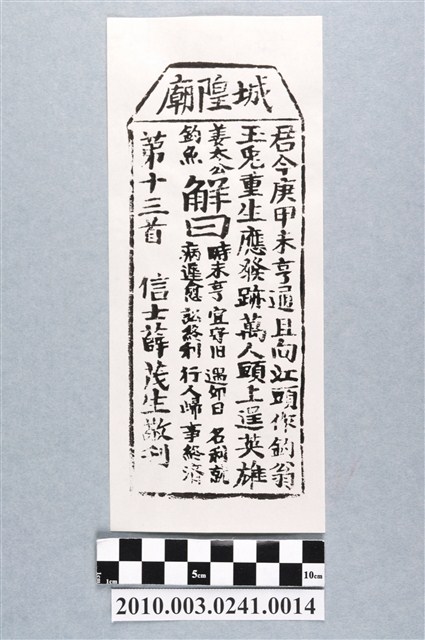 城隍廟
君今庚甲未亨通且向江頭作釣翁
玉兎重生應發跡萬人頭上逞英雄
姜太公釣魚
解曰
時未亨 宜守旧 遇卯日 名利就
病遲愈 訟終利 行人歸 事経済
第十三首 信士薛茂生敬刊
1cm 5cm 10cm
2010.003.0241.0014